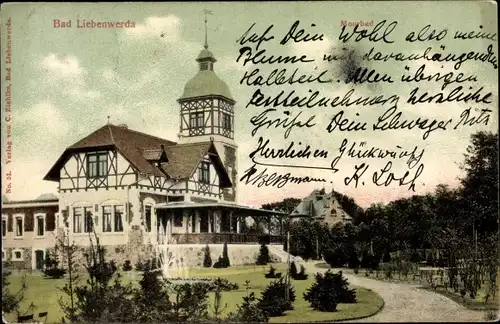 Bad Liebenwerda
Moorbad
Auf Dein Wohl also meine
Blume mit daranhängendem
Halbteil. Allen übrigen
Festteilnehmern herzliche
Grüße! Dein Schwager Fritz
Herzlichen Glückwunsch
Bergmann K. Loth
No. 52. Verlag von C. Ziehlke, Bad Liebenwerda.